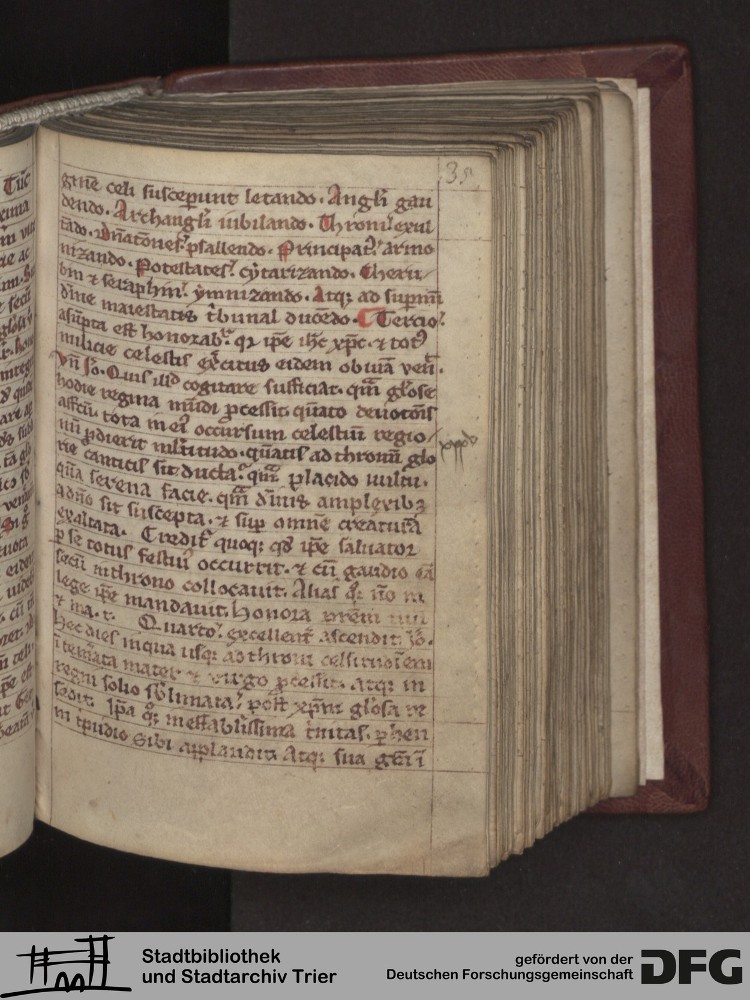 35
gine celi susceperunt letando. Angli gau
dendo. Archangli iubilando. Throni exul
tādo. Dnatōnes psallendo. Principat armo
nizando. Potestates cytarizando. Cheru
bin ⁊ seraphin ymnizando. Atq; ad supernū
dīne maiestatis tbunal ducēdo. Tercio
asūpta est honorab. qr ipe ihc xpc ⁊ totꝰ
milicie celestis exercitus eidem obuiā ven.
Vn Io. Quis illd cogitare sufficiat. qm glōse
hodie regina mūdi pcessit. quāto deuotōis
affcū tota in eiꝰ occursum celestiū regio
nū pdierit mltitudo. quātis ad thronū glo
rie canticis sit ducta. qm placido uultu.
quā serena facie. qm dīnis amplexibꝫ
a dno sit suscepta. ⁊ sup omne creaturā
exaltata. Credit quoq; qd ipe saluator
p se totus festiuꝰ occurrit. ⁊ cū gaudio eā
secū in throno collocauit. Alias q nō in
lege ipe mandauit. Honora prēm tuū
⁊ ma. t. Quarto excellent ascendit. Io.
hec dies inqua usq; ad throni celsitudinem
ītemata mater ⁊ uirgo pcessit. atq; in
regni solio sblimata post xpm glōsa re
sedit. Ipa q; ineffabilissima trinitas. phen
ni tpudio sibi applaudit. Atq; sua grā ī
Stadtbibliothek
und Stadtarchiv Trier
gefördert von der
Deutschen Forschungsgemeinschaft
DFG